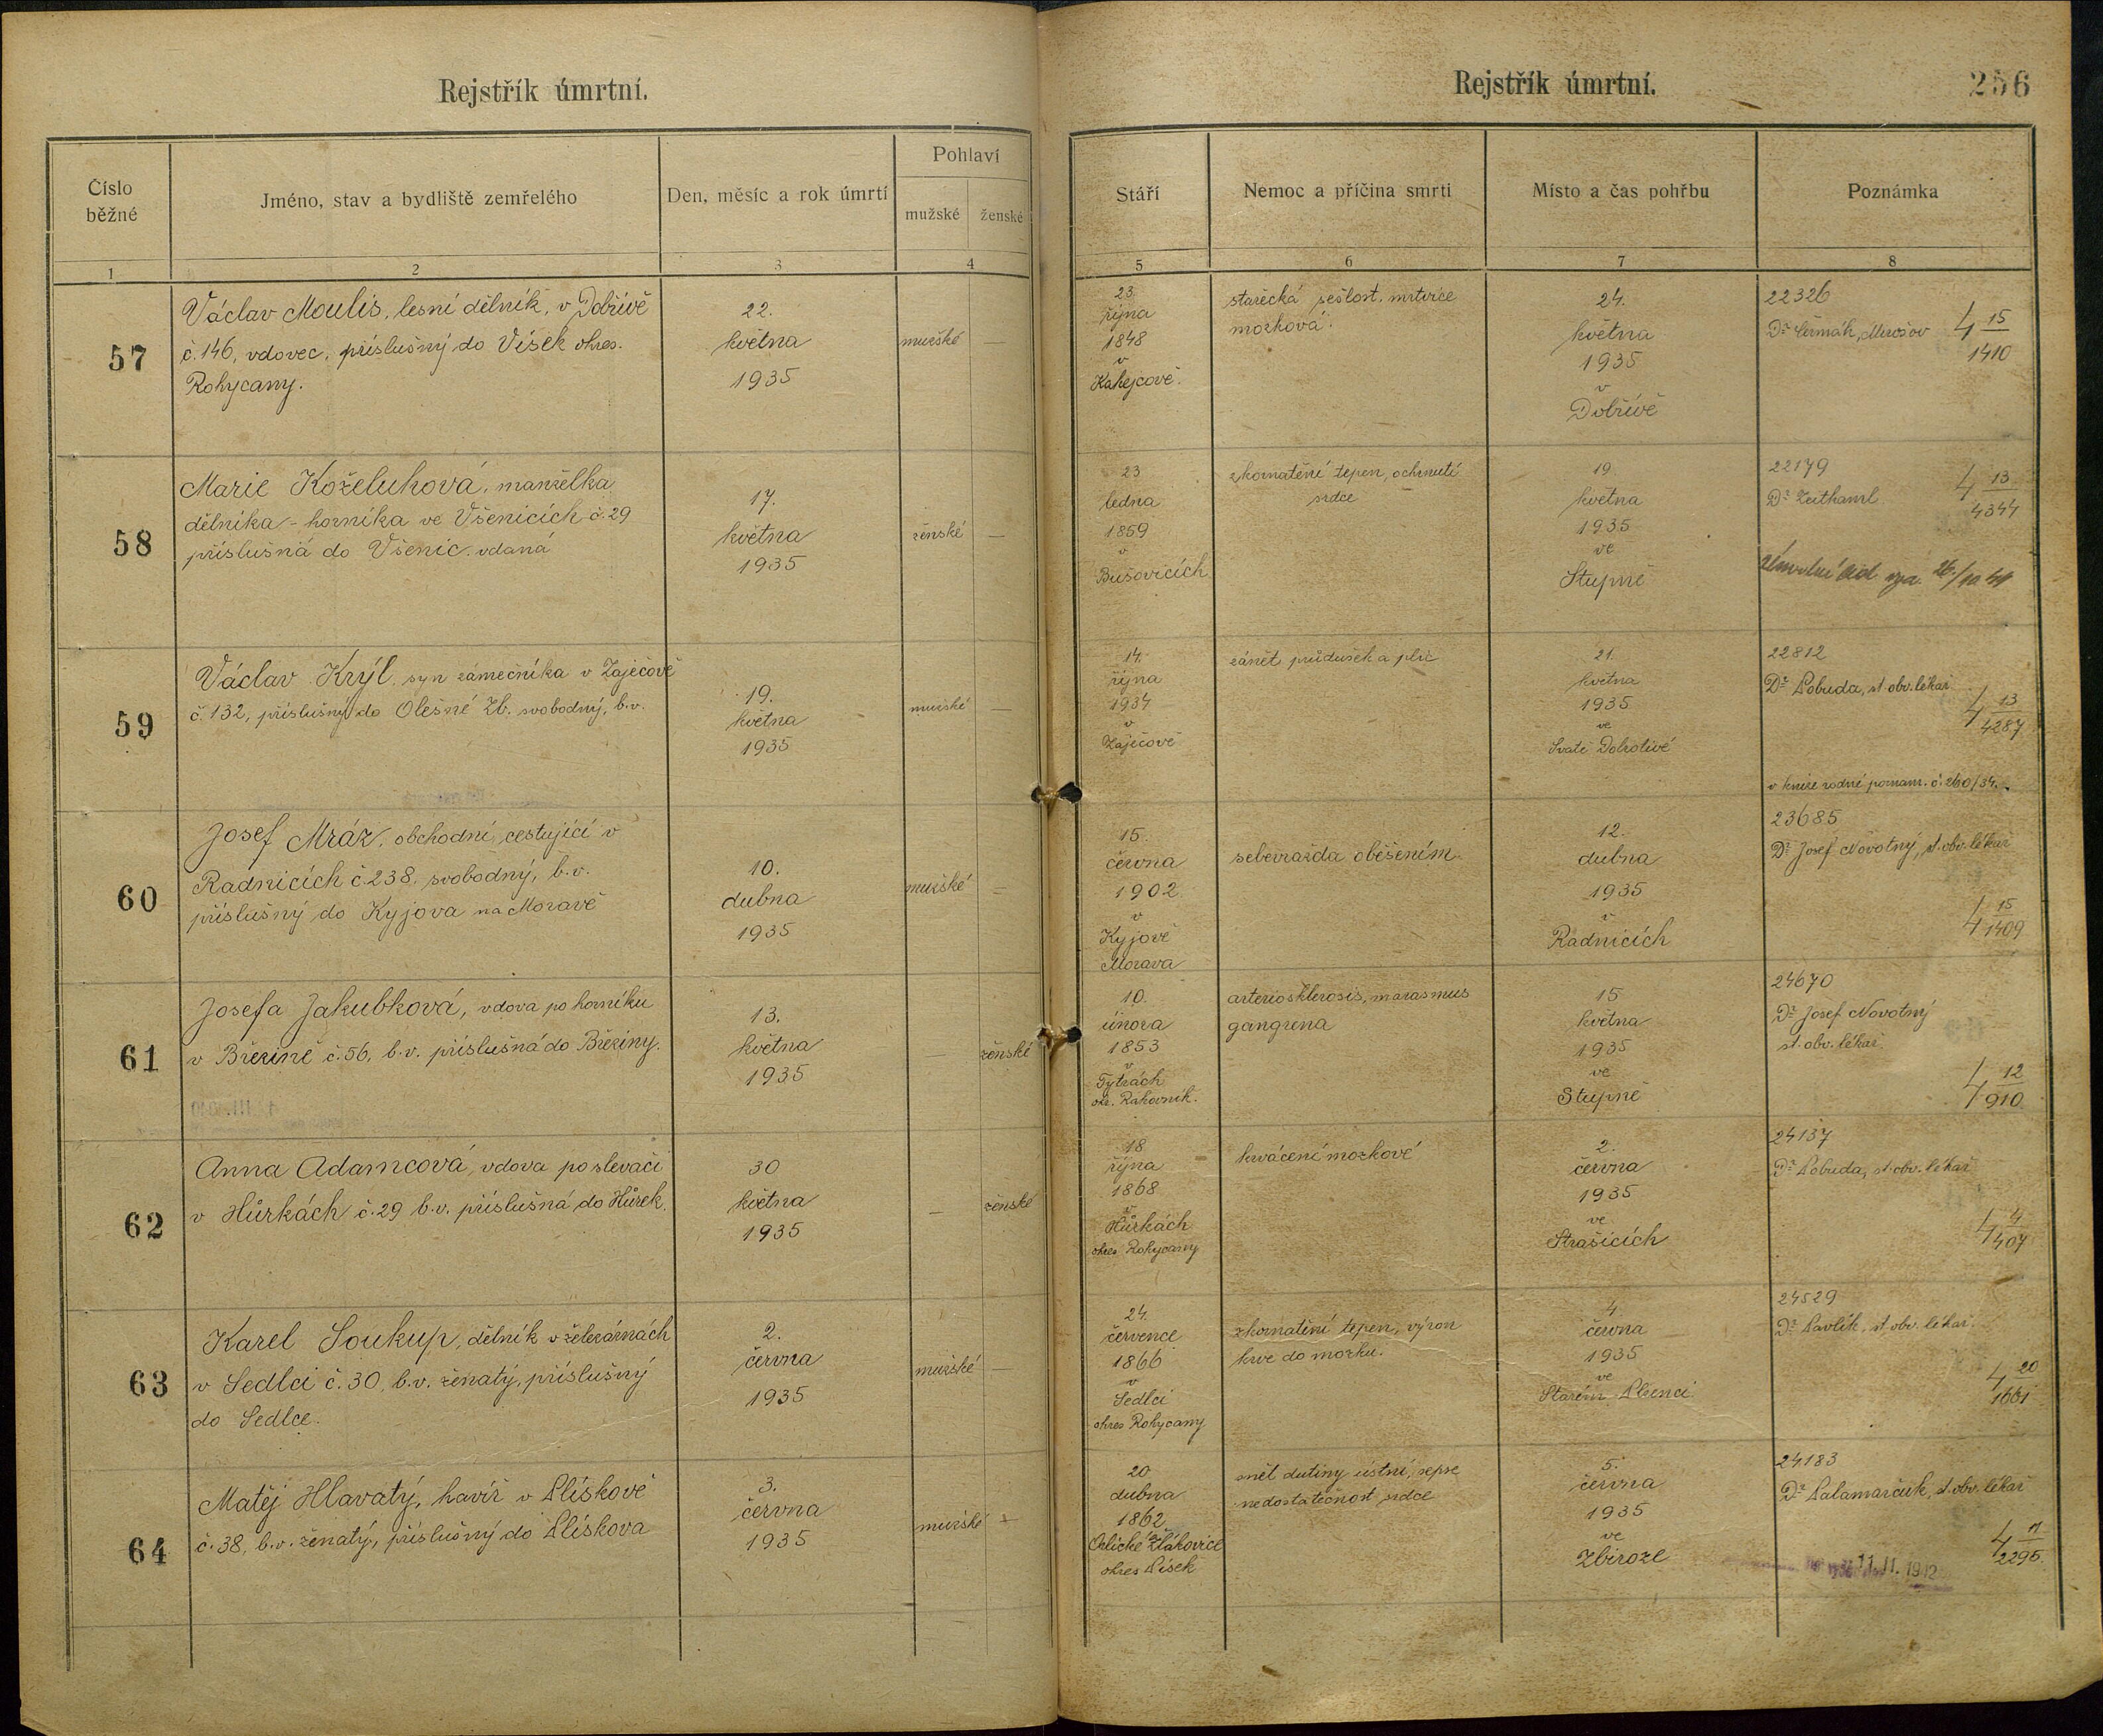 Rejstřík úmrtní.
Číslo běžné
Jméno, stav a bydliště zemřelého
Den, měsíc a rok úmrtí
Pohlaví
mužské ženské
1 2 3 4
57
Václav Moulis, lesní dělník, v Dobřívě
č. 146, vdovec, příslušný do Vísek okres.
Rokycany.
22.
května
1935
mužské —
58
Marie Koželuhová, manželka
dělníka - horníka ve Všenicích č. 29
příslušná do Všenic. vdaná
17.
května
1935
ženské —
59
Václav Krýl, syn zámečníka v Zaječově
č. 132, příslušný do Olešné Zb. svobodný, b.v.
19.
května
1935
mužské —
60
Josef Mráz, obchodní cestující v
Radnicích č. 238, svobodný, b.v.
příslušný do Kyjova na Moravě
10.
dubna
1935
mužské —
61
Josefa Jakubková, vdova po horníku
v Březině č. 56, b.v. příslušná do Březiny.
13.
května
1935
— ženské
62
Anna Adamcová, vdova po slevači
v Hůrkách č. 29 b.v. příslušná do Hůrek.
30
května
1935
— ženské
63
Karel Soukup, dělník v železárnách
v Sedlci č. 30, b.v. ženatý, příslušný
do Sedlce.
2.
června
1935
mužské —
64
Matěj Hlavatý, havíř v Plískově
č. 38, b.v. ženatý, příslušný do Plískova
3.
června
1935
mužské —
Rejstřík úmrtní.
256
Stáří
Nemoc a příčina smrti
Místo a čas pohřbu
Poznámka
5 6 7 8
23.
října
1848
v
Kakejcově.
stařecká sešlost, mrtvice
mozková.
24.
května
1935
v
Dobřívě
22326
Dr Čermák, Mirošov
4 15
1410
23
ledna
1859
v
Bušovicích
zkornatění tepen, ochrnutí
srdce
19.
května
1935
ve
Stupně
22179
Dr Zeithaml
4 13
4344
26./10 41
14.
října
1934
v
Zaječově
zánět průdušek a plic
21.
května
1935
ve
Svaté Dobrotivé
22812
Dr Pobuda, st. obv. lékař
4 13
4287
v knize rodné poznam. č. 260/34.
15.
června
1902
v
Kyjově
Morava
sebevražda oběšením
12.
dubna
1935
v
Radnicích
23685
Dr Josef Novotný, st. obv. lékař
4 15
1409
10.
února
1853
v
Tytrách
okr. Rakovník.
arteriosklerosis, marasmus
gangrena
15
května
1935
ve
Stupně
24670
Dr Josef Novotný
st. obv. lékař
4 12
910
18
října
1868
v
Hůrkách
okres Rokycany
krvácení mozkové
2.
června
1935
ve
Strašicích
24137
Dr Pobuda, st. obv. lékař
4 4
407
24.
července
1866
v
Sedlci
okres Rokycany
zkornatění tepen, výron
krve do mozku.
4.
června
1935
ve
Starém Plzenci
24529
Dr Pavlík, st. obv. lékař.
4 20
1661
20
dubna
1862
Orlické Zlákovice
okres Písek
snět dutiny ústní, sepse
nedostatečnost srdce
5.
června
1935
ve
Zbiroze
24183
Dr Palamarčuk, st. obv. lékař
4 11
2295.
11. II. 1942